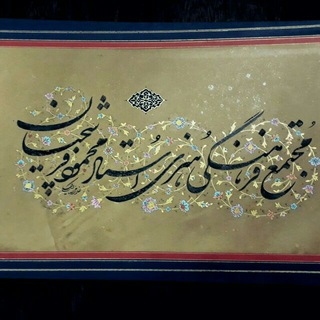 مجتمع فرهنگی هنری استاد محمود فرشچیان